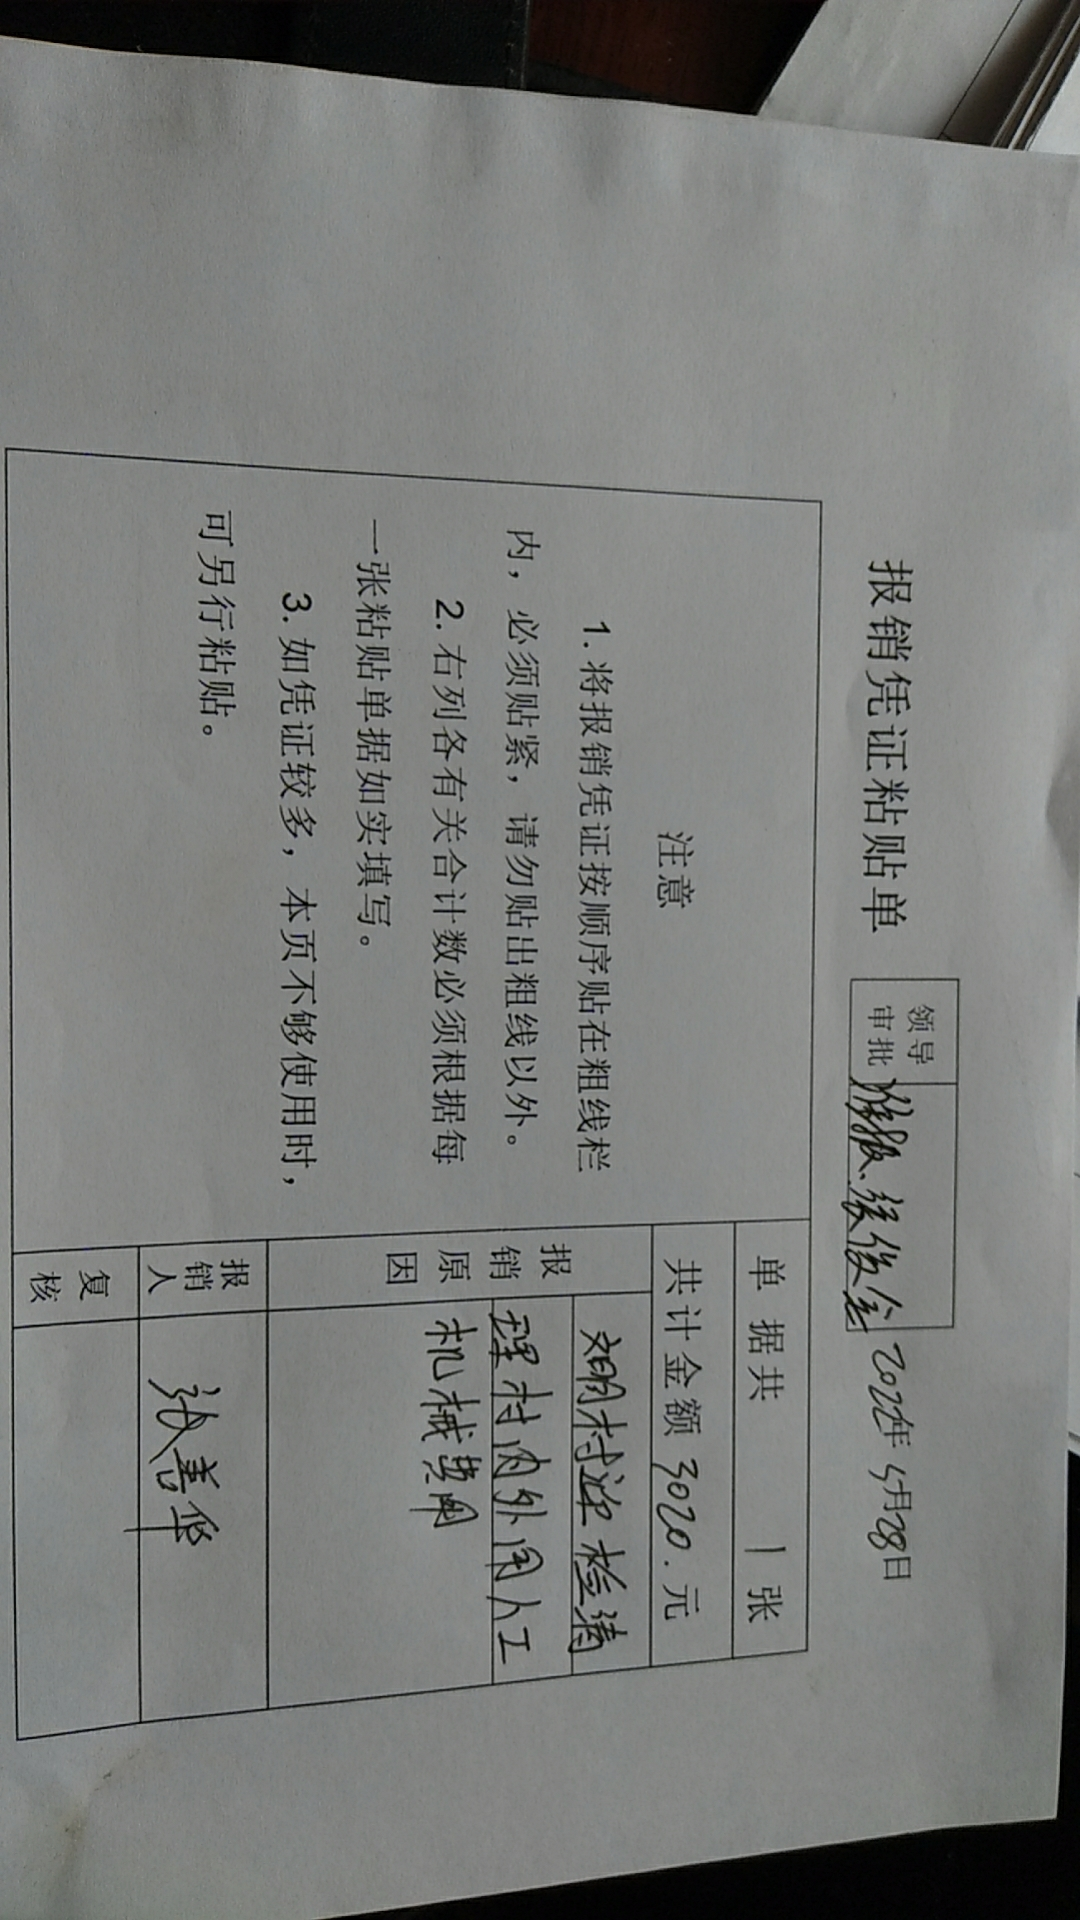 报销凭证粘贴单
领导
审批
准报.张俊全
2022年5月28日
注意
1. 将报销凭证按顺序贴在粗线栏
内，必须贴紧，请勿贴出粗线以外。
2. 右列各有关合计数必须根据每
一张粘贴单据如实填写。
3. 如凭证较多，本页不够使用时，
可另行粘贴。
单据共 1 张
共计金额 3020.元
报销原因
文明村迎检清
理村内外用人工
机械费用
报销人
张善华
复核